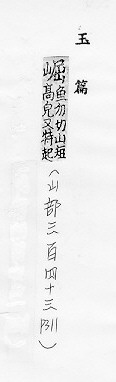 玉篇
崛魚勿切山短
高皃又特起
(山部三百四十三 P311)